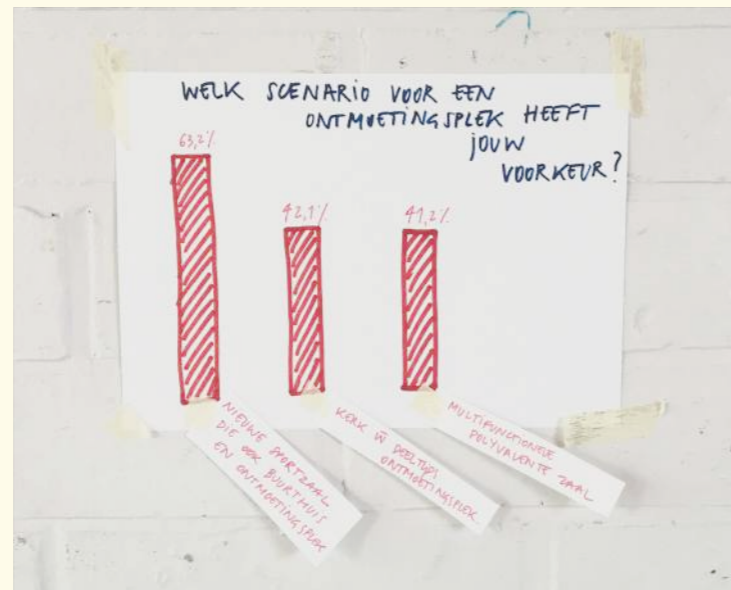 WELK SCENARIO VOOR EEN
ONTMOETINGSPLEK HEEFT
JOUW
VOORKEUR?
63,2%
42,1%
41,2%
NIEUWE SPORTZAAL
DIE OOK BUURTHUIS
EN ONTMOETINGSPLEK
KERK als DEELTIJDS
ONTMOETINGSPLEK
MULTIFUNCTIONELE
POLYVALENTE ZAAL